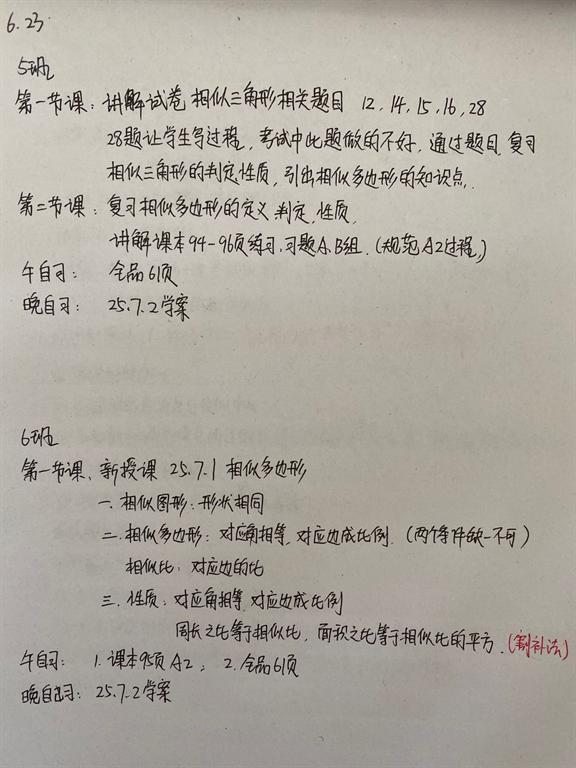 6.23
5班
第一节课：讲解试卷 相似三角形相关题目 12，14，15，16，28
28题让学生写过程，考试中此题做的不好，通过题目，复习
相似三角形的判定性质，引出相似多边形的知识点．
第二节课：复习相似多边形的定义 判定，性质．
讲解课本94-96页练习，习题A、B组．（规范A2过程．）
午自习： 全品61页
晚自习： 25.7.2学案
6班
第一节课、新授课 25.7.1 相似多边形
一．相似图形：形状相同
二．相似多边形：对应角相等，对应边成比例．（两个条件缺一不可）
相似比：对应边的比
三．性质：对应角相等，对应边成比例
周长之比等于相似比，面积之比等于相似比的平方．（割补法）
午自习： 1.课本95页A2； 2.全品61页
晚自习： 25.7.2学案